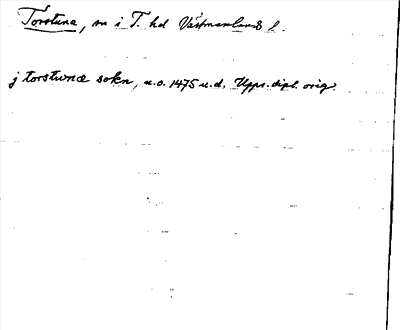 Torstuna, sn i T. hd Västmanlands l.
j torstunæ sokn, u.o. 1475 u.d. Upps. dipl. orig.